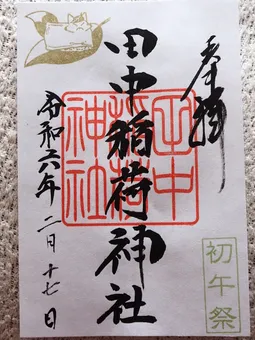 奉拝
田中稲荷神社
田中稲荷神社
令和六年二月十七日
初午祭